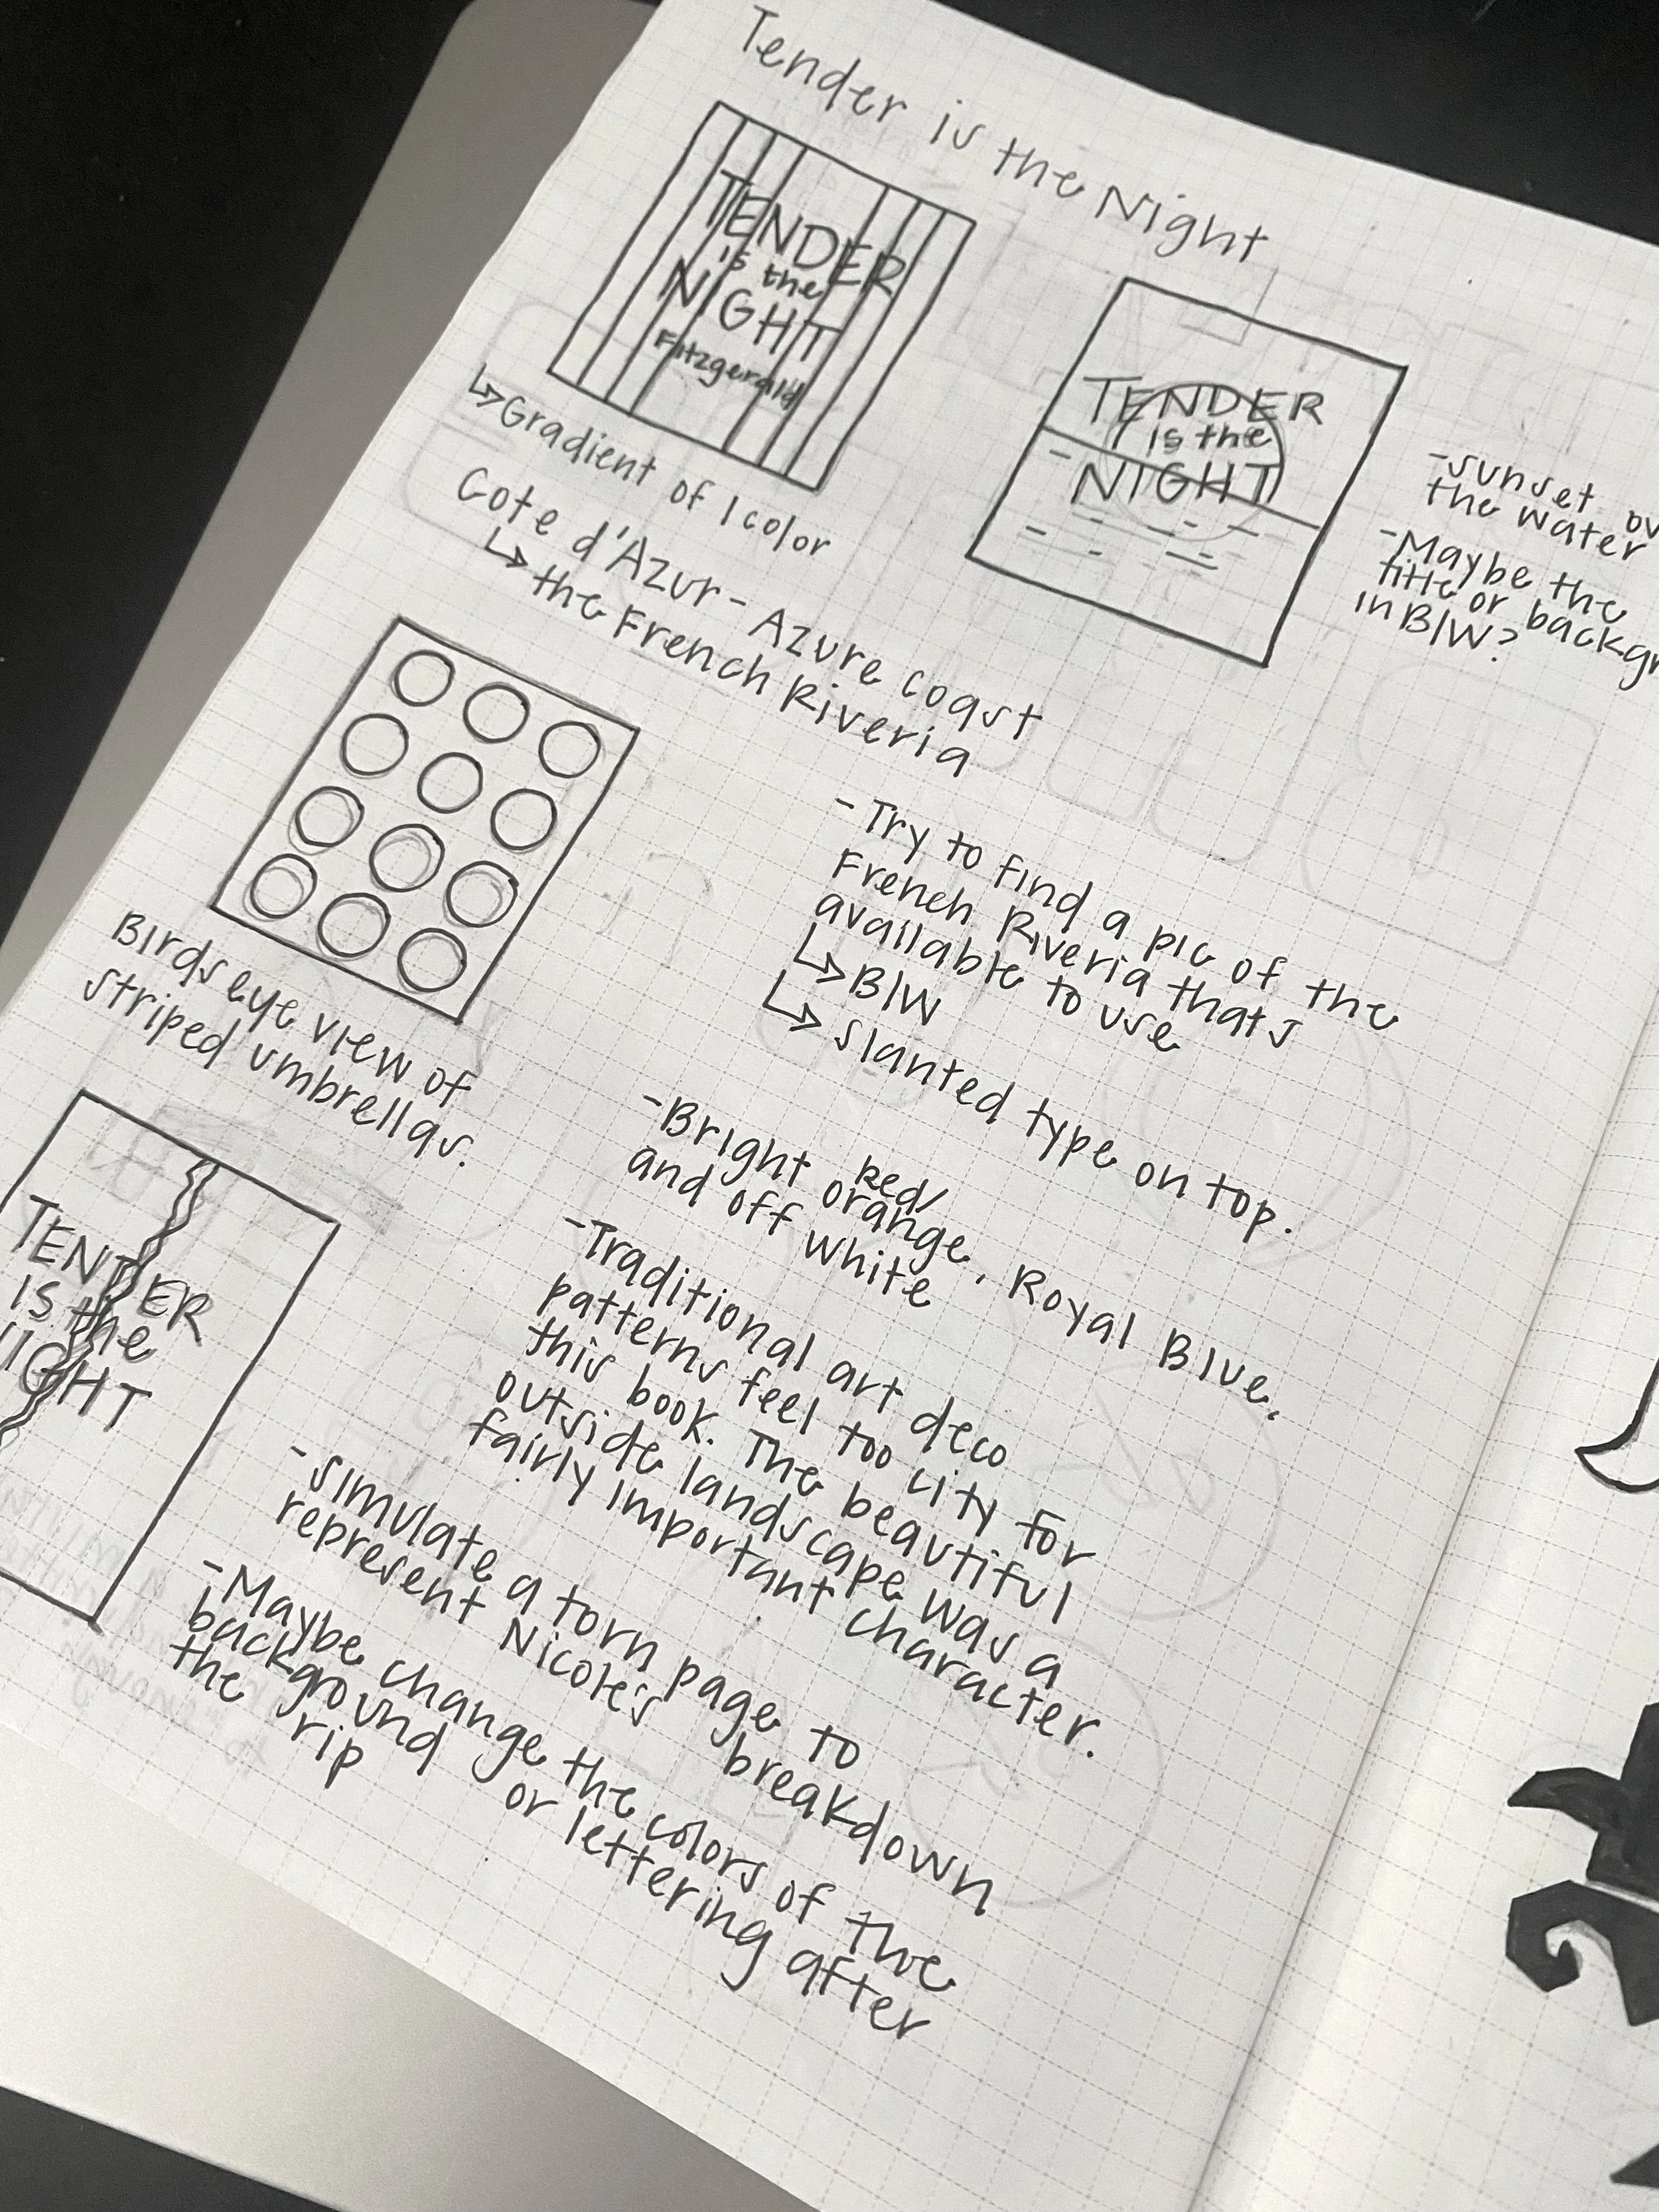 Tender is the Night
TENDER
is the
NIGHT
Fitzgerald
↳ Gradient of 1 color
TENDER
is the
NIGHT
- sunset ov
the water
- Maybe the
title or backgr
in B/W?
Cote d'Azur - Azure coast
↳ the French Riveria
Birds eye view of
striped umbrellas.
- Try to find a pic of the
French Riveria thats
available to use
↳ B/W
↳ slanted type on top.
- Bright Red/
orange, Royal Blue,
and off white
- Traditional art deco
patterns feel too city for
this book. The beautiful
outside landscape was a
fairly important character.
TENDER
is the
NIGHT
- simulate a torn page to
represent Nicole's breakdown
- Maybe change the colors of the
background or lettering after
the rip